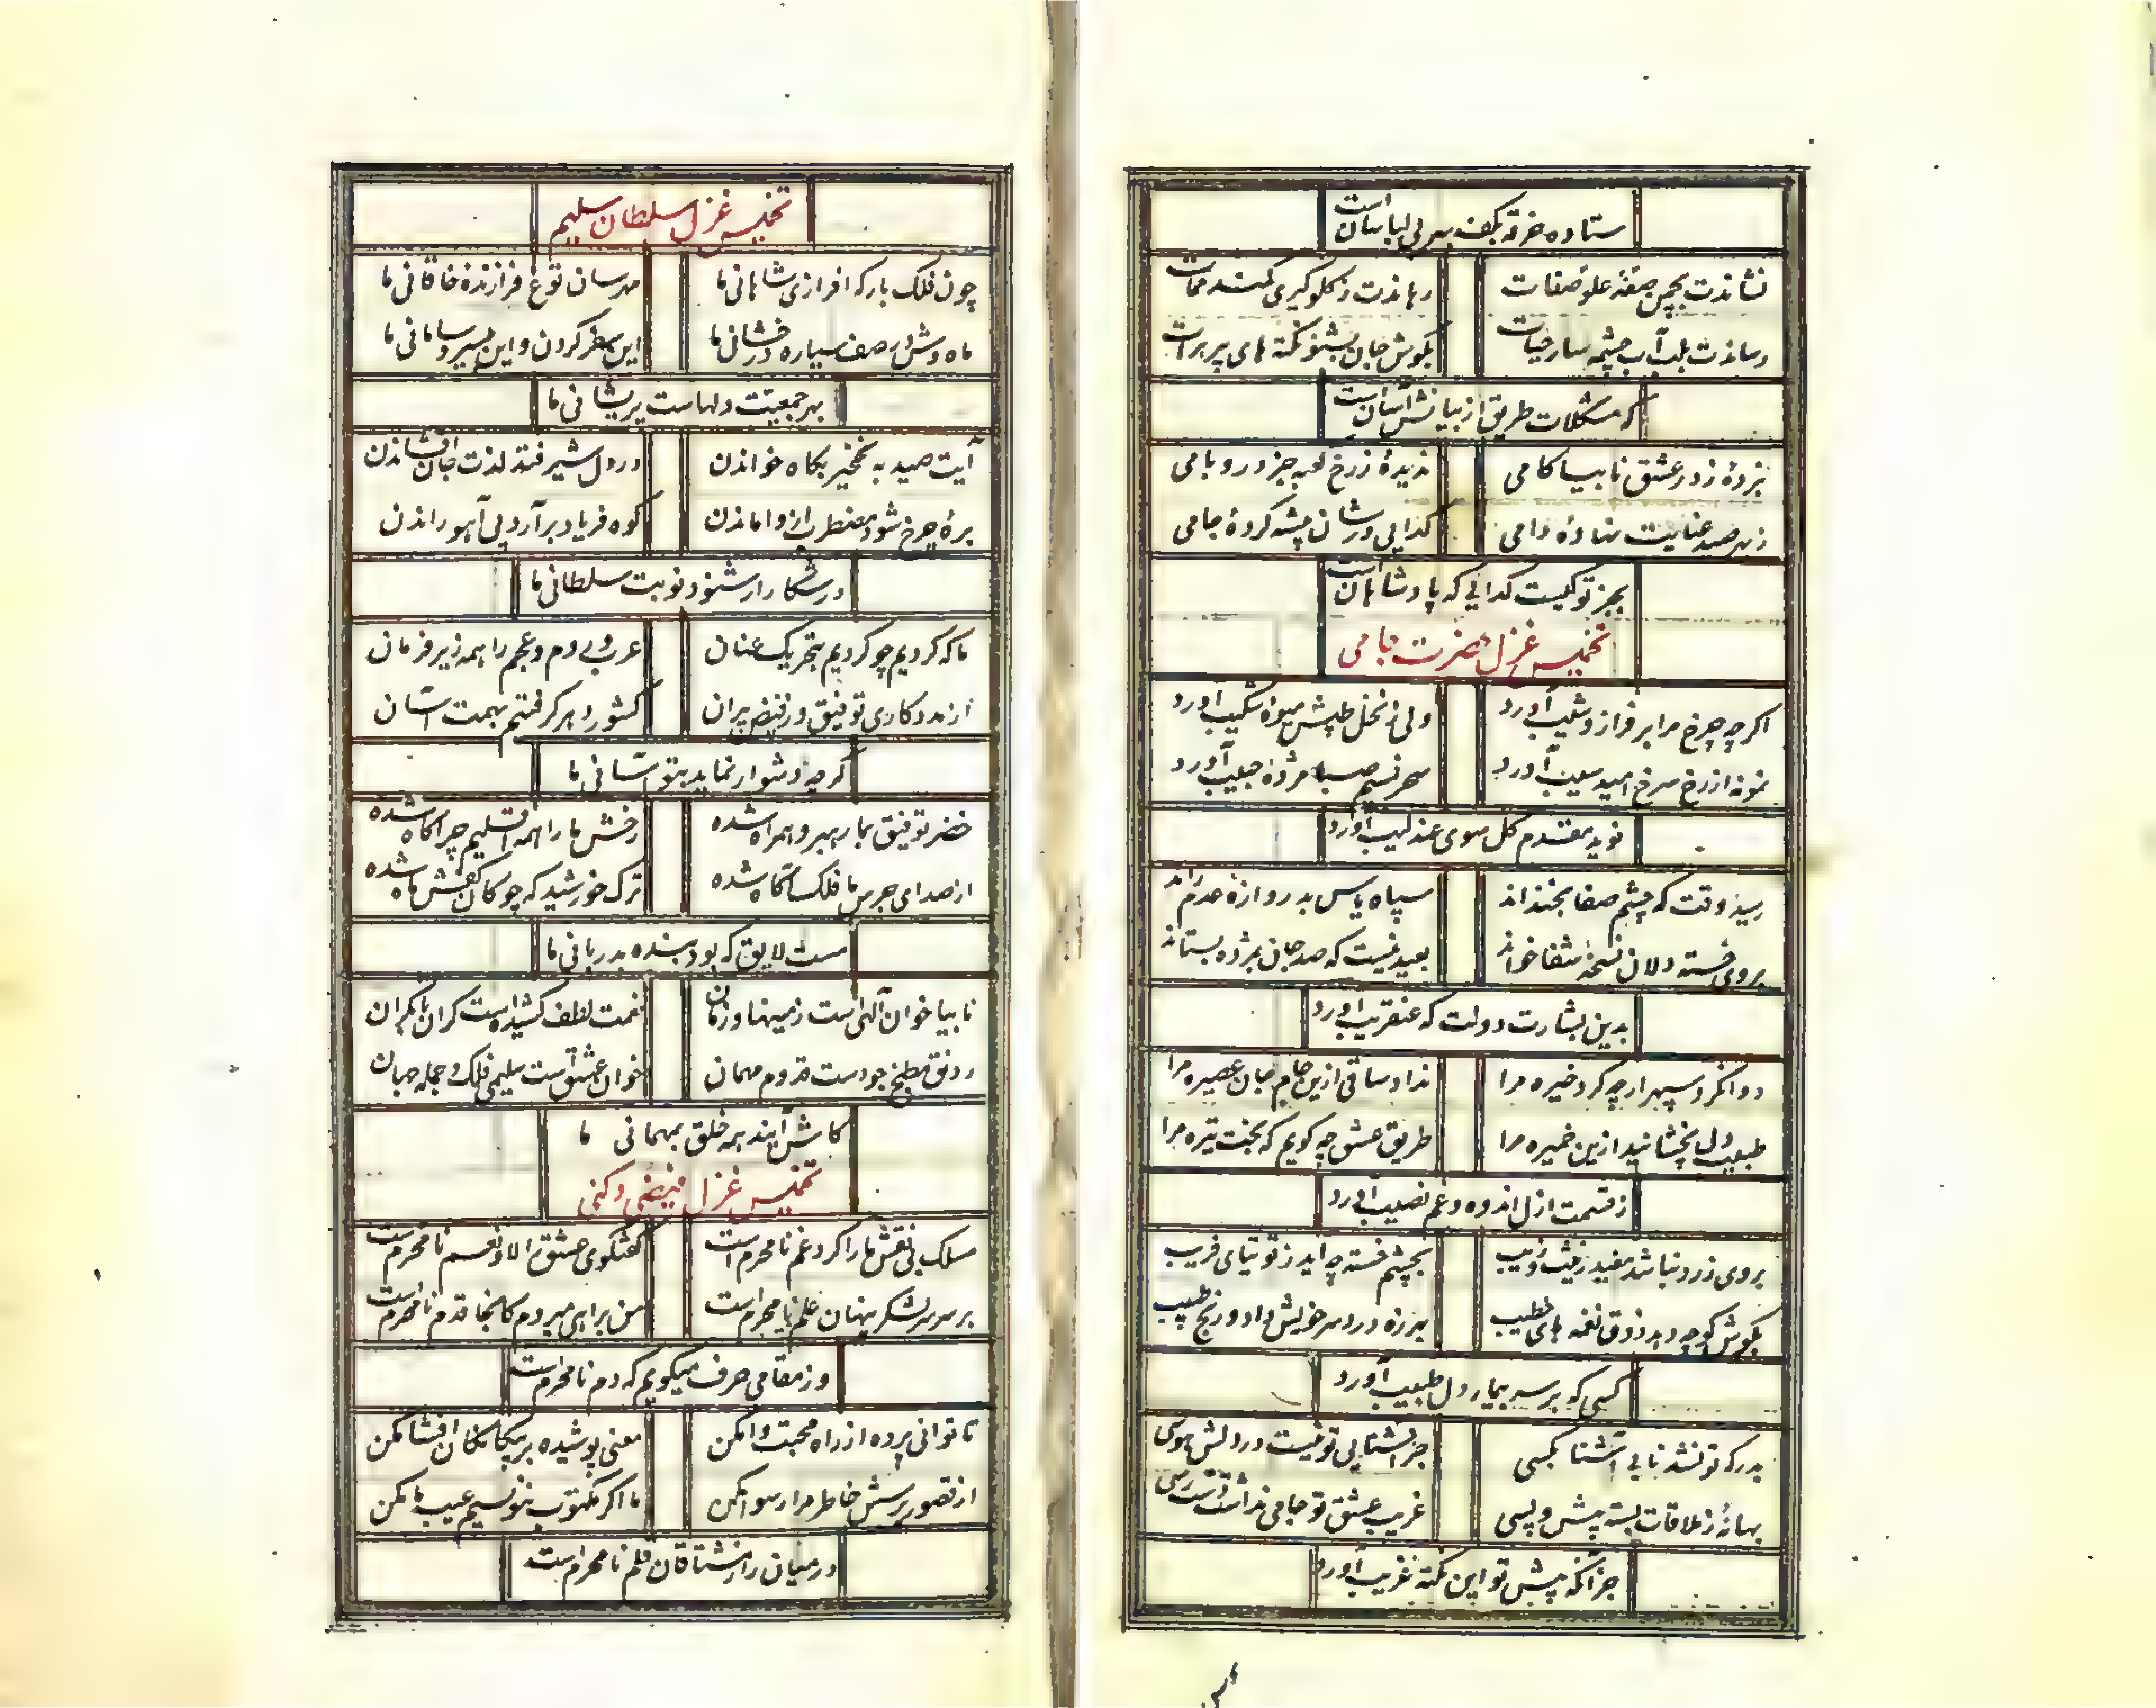 ستاده خرقه بکف بهر بی لباسان است
نشاندت بچمن صفهٔ علو صفات
رهاندت ز کلوکیری کمند ممات
رساندت بلب آب چشمه سار حیات
بکوش جان بشنو نکته های پر برات
که مشکلات طریق از بیانش آسان است
نزدهٔ ز در عشق نابیا کامی
ندیدهٔ ز رخ کعبه جز در و بامی
ز بهر صید عنایت نهادهٔ دامی
کدایی در شان پیشه کردهٔ جامی
بجز تو کیست کدایی که پادشاهان است
تخمیس غزل حضرت جامی
اکرچه چرخ مرا بر فراز و شیب آورد
ولی ز نخل طپش میوهٔ شکیب آورد
نمونه از رخ سرخ امید سیب آورد
سحر نسیم صبا مژدهٔ حبیب آورد
نوید مقدم کل سوی عندلیب آورد
رسید وقت که چشم صفا بخنداند
سپاه یاس بدروازهٔ عدم راند
بروی خسته دلان نسخهٔ شفا خواند
بعید نیست که صد جان بمژده بستاند
بدین بشارت دولت که عنقریب آورد
دوا نکرد سپهر ارچه کرد خیره مرا
نداد ساقی ازین جام جان عصیره مرا
طبیب دل نچشانید ازین خمیره مرا
طریق عشق چه کویم که بخت تیره مرا
ز قسمت ازل اندوه و غم نصیب آورد
بروی زرد نباشد مفید زینت و زیب
بچشم خسته چه اید ز توتیای فریب
بکوش کر چه دهد ذوق نغمه های خطیب
بهرزه درد سر خویش داد و رنج طبیب
کسی که بر سر بیمار دل طبیب آورد
بدرکه تو نشد نابی آشنا بکسی
جز آشنایی تو نیست در دلش هوسی
بهانهٔ ز ملاقات بسته پیش و پسی
غریب عشق تو جامی نداشت دست رسی
جز آنکه پیش تو این نکتهٔ غریب آورد
تخمیس غزل سلطان سلیم
چون فلک بارکه افرازی شاهانی ما
مهرسان توغ فرازندهٔ خاقانی ما
ماه وش در صف سیاره درخشانی ما
این سفر کردن و این بی سر و سامانی ما
بهر جمعیت دلهاست پریشانی ما
آیت صید به نخچیر بکاه خواندن
در دل شیر فتد لذت جان افشاندن
برهٔ چرخ شود مضطر از واماندن
کوه فریاد برآرد پی آهو راندن
در شکار ار شنود نوبت سلطانی ما
ما که کردیم چو کردیم بتحریک عنان
عرب و روم و عجم را همه زیر فرمان
از مددکاری توفیق و ز فیض پیران
کشور دهر کرفتیم بهمت آسان
کرچه دشوار نماید بتو آسانی ما
خضر توفیق بما رهبر و همراه شده
رخش ما را همه اقلیم چراکاه شده
از صدای جرس ما فلک آکاه شده
ترک خورشید که چوکان کفش ماه شده
هست لایق که بود بنده بدربانی ما
نابیا خوان آلهی است زمینها و زمان
نعمت لطف کشیده است کران تا بکران
رونق مطبخ جود است قدوم مهمان
خوان عشق است سلیمی فلک و جمله جهان
کاش آیند همه خلق بمهمانی ما
تخمیس غزل فیضی دکنی
مسلک بی نقش ما را کرد غم نامحرم است
کفتکوی عشق را لا و نعم نامحرم است
بر سر سر لشکر پنهان علم نامحرم است
من براهی میروم کانجا قدم نامحرم است
وز مقامی حرف میکویم که دم نامحرم است
تا توانی پرده از راه محبت وا مکن
معنی پوشیده بر بیکانکان افشا مکن
از تصور پرسش خاطر مرا رسوا مکن
ما اکر مکتوب ننویسیم عیب ما مکن
در میان راز مشتاقان قلم نامحرم است